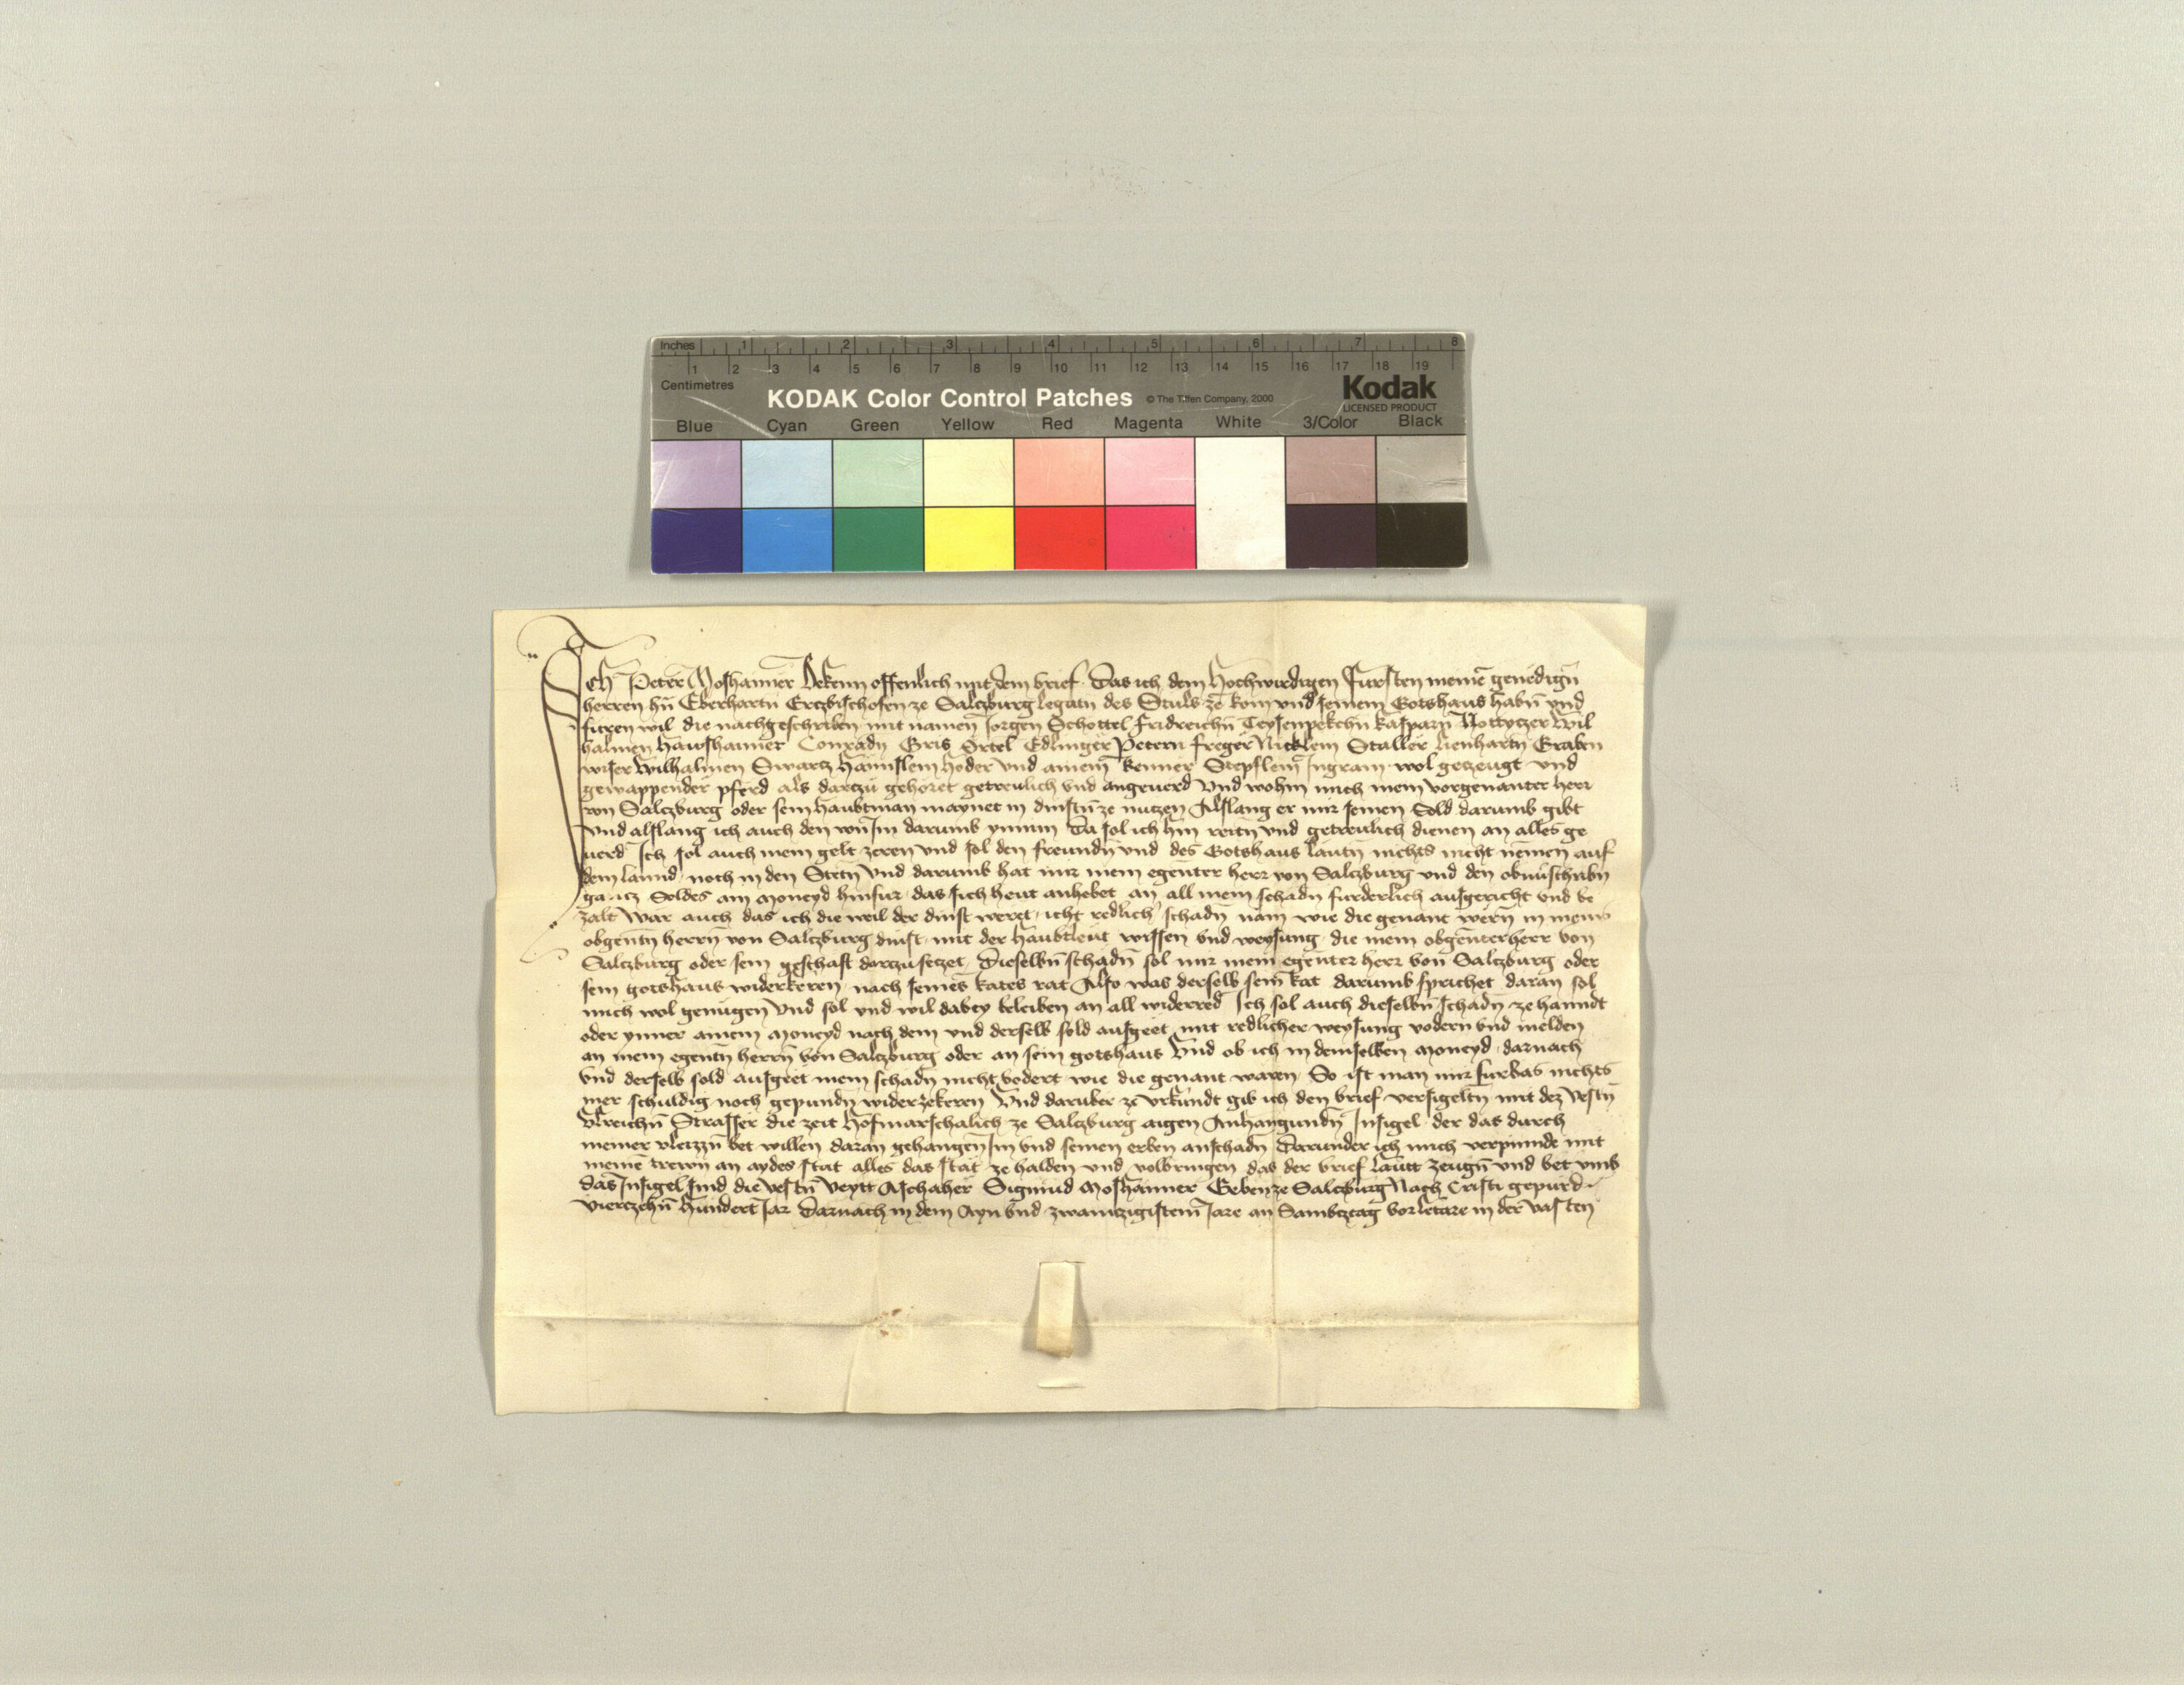 Inches 1 2 3 4 5 6 7 8
1 2 3 4 5 6 7 8 9 10 11 12 13 14 15 16 17 18 19
Centimetres
KODAK Color Control Patches © The Tiffen Company, 2000 Kodak
LICENSED PRODUCT
Blue Cyan Green Yellow Red Magenta White 3/Color Black
Ich Peter Moshaimer Bekenn offenlich mit dem brief Das ich dem Hochwirdigen Fürsten meinē genedign̄
herren hn̄ Eberhartn Erczbischofen ze Salczburg legatn des Stuls ze Rom vnd seinem Gotshaus habn̄ vnd
füren wil die nachgeschriben mit namen Jorgen Schottel Fridreichn̄ Teysenpekchn̄ Kasparn̄ Wil
halmen Hawshaimer Conradn Gris Örtel Edlinger Petern Freger Nicklein Staller Lienhartn̄ Graben
wiser Wilhalmen Swartz Hainslein Hoder vnd ainem Renner Stepflein Ingram wol geczeugt vnd
gewappender pferd als darczu gehöret getreulich vnd angeuerd Vnd wohin mich mein vorgenanter herr
von Salczburg oder sein haubtman maynet in dinstn̄ ze nutzen Alslang er mir seinen Sold darumb gibt
Vnd alslang ich auch den von Im darumb ynnim Da sol ich hin reitn̄ vnd getreulich dienen an alles ge
uerd Ich sol auch mein gelt zeren vnd sol den freundn̄ vnd des Gotshaus läutn̄ nichts nicht nemen auf
dem lannd noch in den Stetn̄ Vnd darumb hat mir mein egenter herr von Salczburg vnd den obnuschribn
gancz Soldes ain moneyd hinfur das sich heut anhebet an all mein schadn̄ furderlich ausgericht vnd be
zalt Wär auch das ich die weil der dinst weret icht redlich schadn̄ näm wie die genant wern̄ in meins
obgentn̄ herrn̄ von Salczburg dinst mit der haubtleut wissen vnd weysung die mein obgenter herr von
Salczburg oder sein geschäft darczu seczet Dieselbn̄ schadn̄ sol mir mein egenter herr von Salczburg oder
sein gotshaus widerkeren nach seines Rates rat Also was derselb sein Rat darumb sprichet daran sol
mich wol genügen Vnd sol vnd wil dabey beleiben an all widerred Ich sol auch dieselbn̄ schadn̄ ze hanndt
oder ynner ainem moneyd nach dem vnd derselb sold ausgeet mit redlicher weysung vodern vnd melden
an mein egentn̄ herrn̄ von Salczburg oder an sein gotshaus Vnd ob ich in demselben moneyd darnach
vnd derselb sold ausgeet mein schadn̄ nicht vodert wie die genant wären So ist man mir furbas nichts
mer schuldig noch gepundn̄ widerzekeren Vnd darüber ze vrkundt gib ich den brief versigeltn̄ mit dez vestn̄
Vlreichn̄ Strasser die zeit Hofmarschalich ze Salczburg aigen Anhangundn̄ Insigel der das durch
meiner vleizzn̄ bet willen daran gehangen Im vnd seinen erben anschadn̄ Darunder ich mich verpinnde mit
meinē trewn̄ an aydes stat alles das stät ze halden vnd volbringen das der brief lautt Zeugn̄ vnd bet vmb
das Insigel sind die vestn̄ Veytt Aschaher Sigmund Moshaimer Geben ze Salczburg Nach Cristi gepurd
Vierczehn̄ Hundert Jar Darnach in dem Ayn vnd zwainczigistem Jare an Sambcztag vor letare in der Vasten